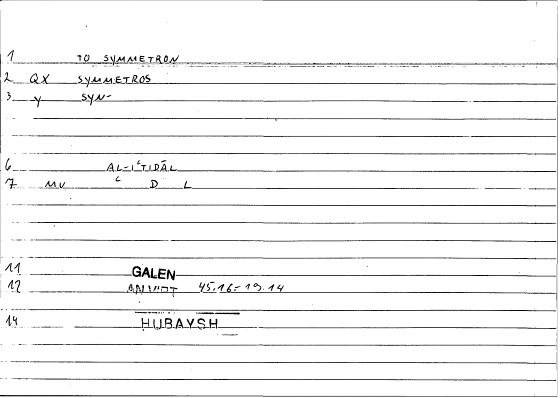 1 TO SYMMETRON
2 QX SYMMETROS
3 y SYN-
6 AL-IʿTIDĀL
7 MU ʿ D L
11 GALEN
12 45.16-19.14
14 HUBAYSH